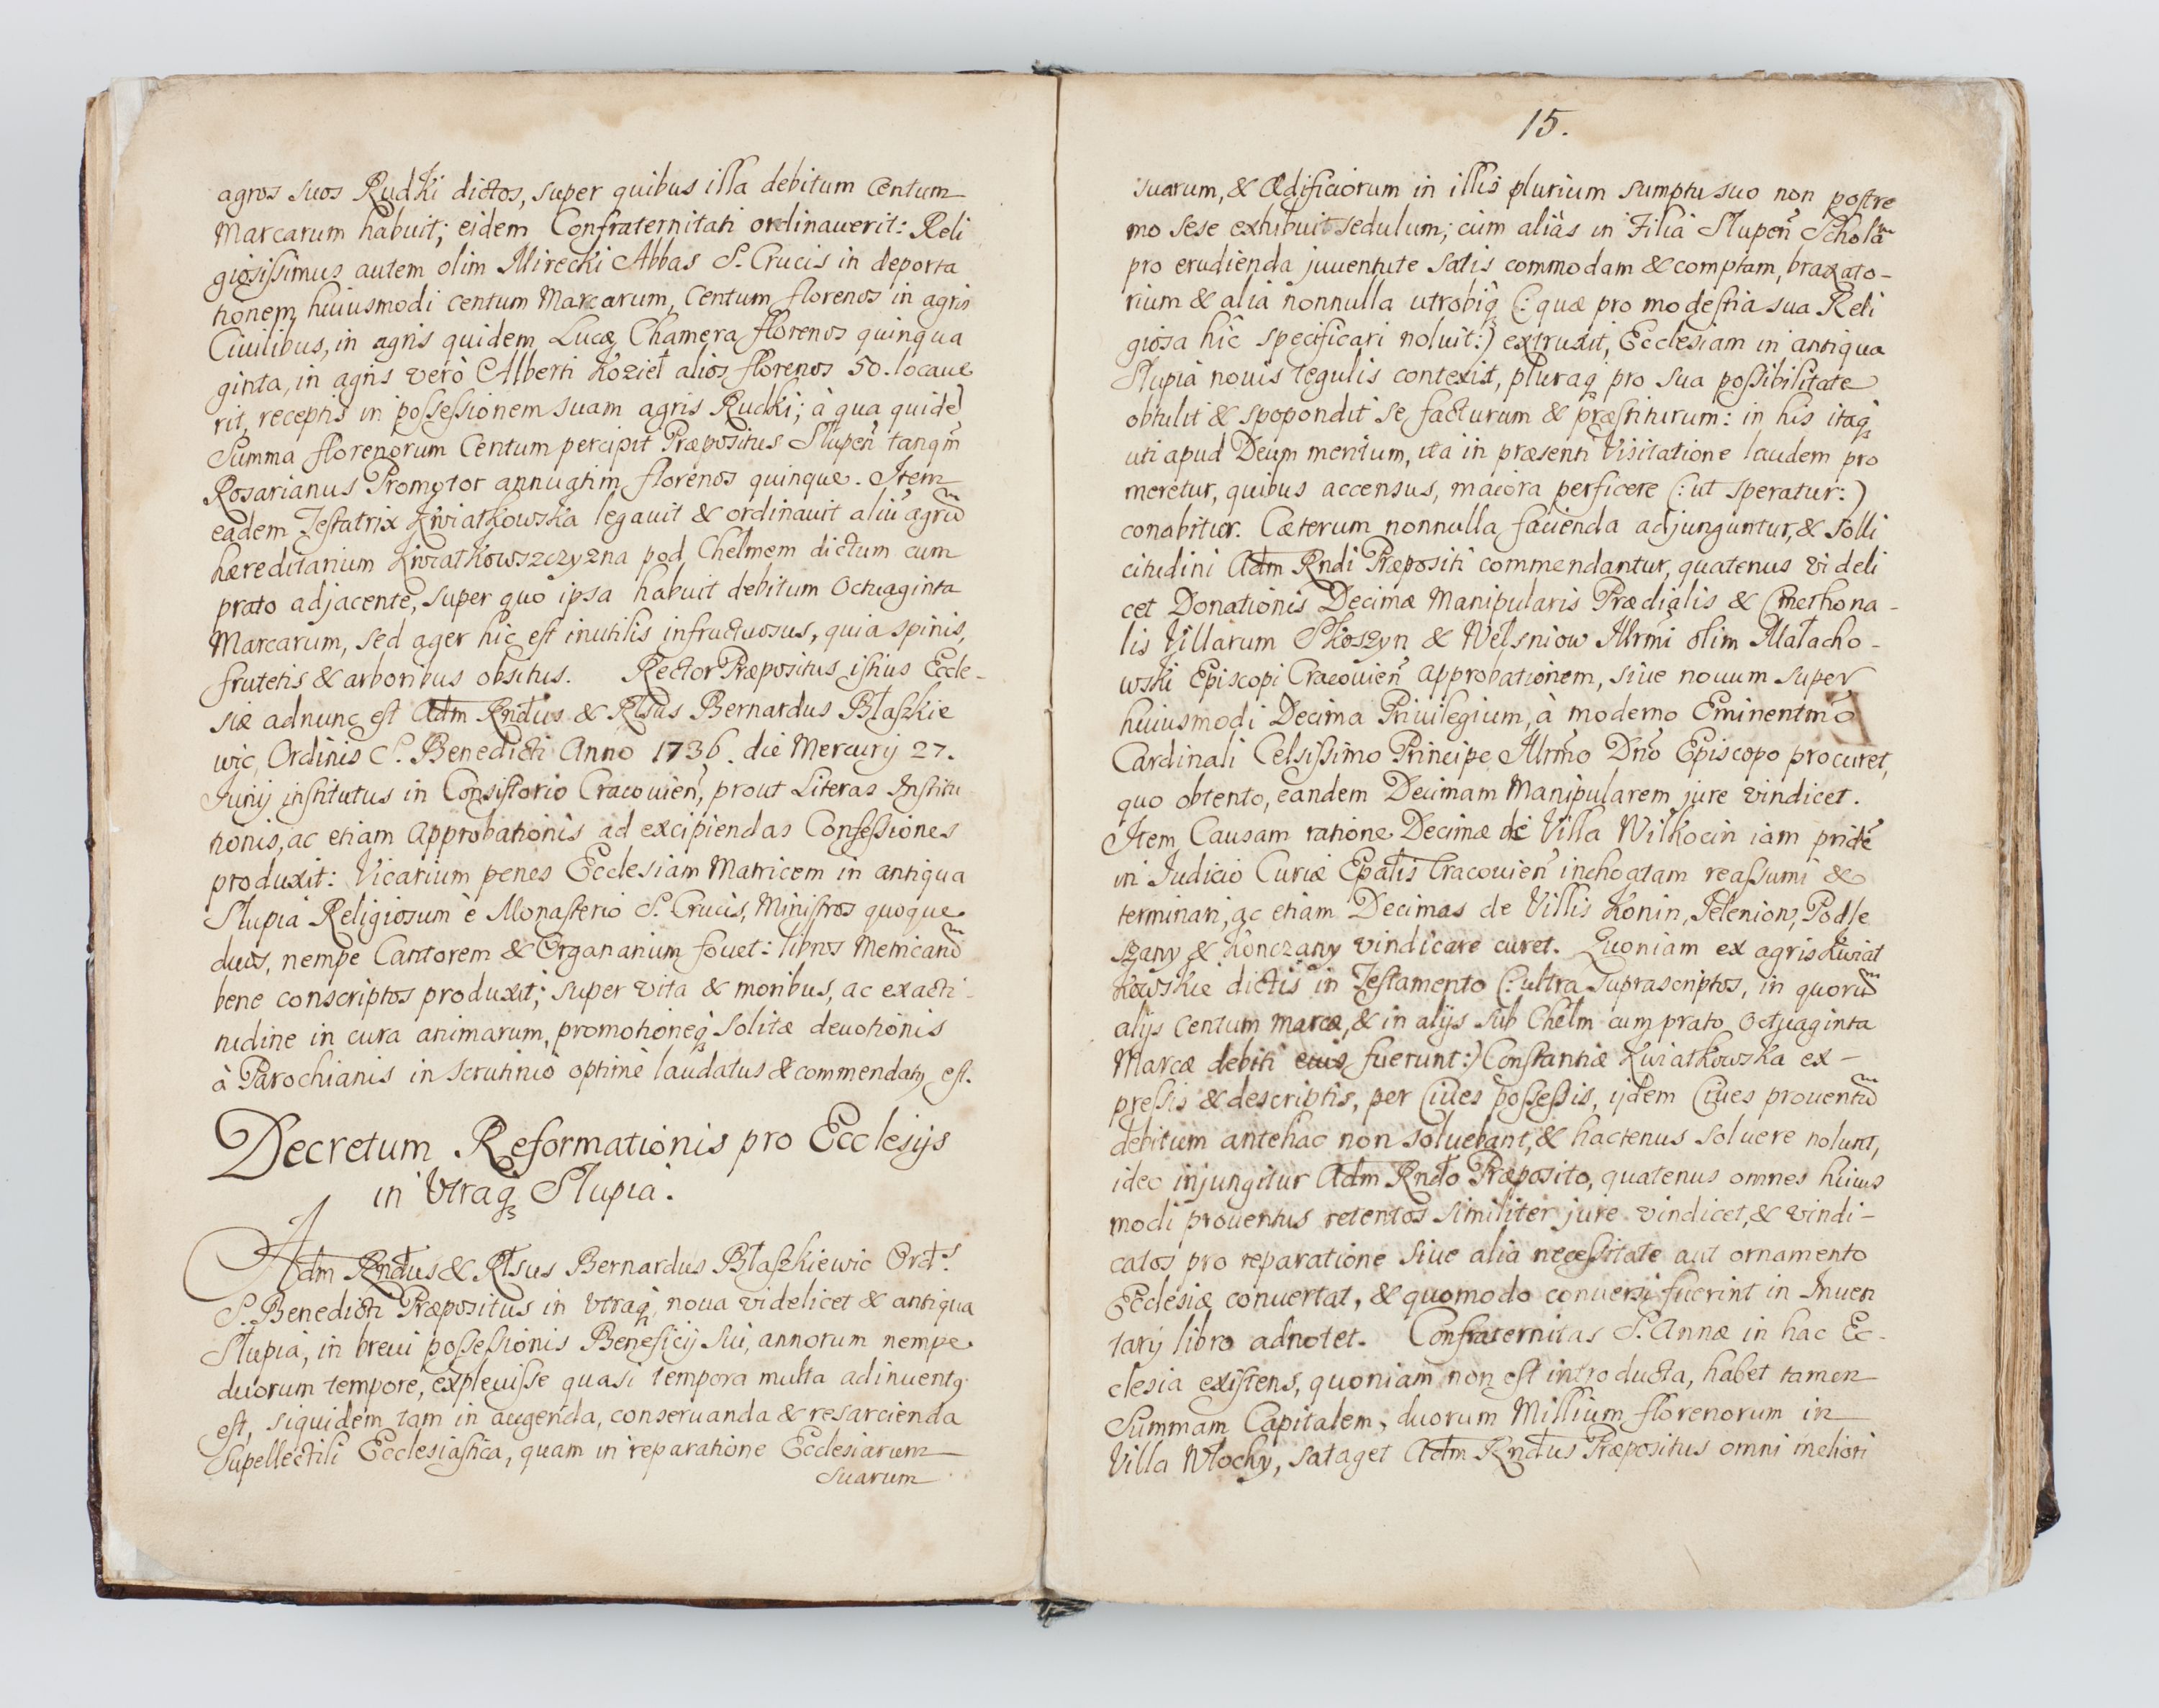 agros suos Rudki dictos, super quibus illa debitum Centum
Marcarum habuit; eidem Confraternitati ordinauerit: Reli
giosissimus autem olim Mirecki Abbas S. Crucis in deporta
tionem huiusmodi centum Marcarum, Centum florenos in agris
Ciuilibus, in agris quidem Lucæ Chamera florenos quinqua
ginta, in agris verò Alberti Kozieł alios florenos 50. locaue
rit, receptis in possessionem suam agris Rudki; à qua quidẽ
Summa florenorum Centum percipit Præpositus Słupeñ tanqm̃
Rosarianus Promotor annuatim florenos quinque. Item
eadem Testatrix Kwiatkowska legauit & ordinauit aliũ agrũ
hæreditarium Kwiatkowszczyzna pod Chełmem dictum cum
prato adjacente, super quo ipsa habuit debitum Octuaginta
Marcarum, sed ager hic est inutilis infructuosus, quia spinis,
frutetis & arboribus obsitus. Rector Præpositus istius Eccle-
siæ adnunc est Adm Rndus & Rlsus Bernardus Błaszkie
wic, Ordinis S. Benedicti Anno 1736. die Mercurij 27.
Junij institutus in Consistorio Cracouieñ, prout Literas Institu
tionis, ac etiam Approbationis ad excipiendas Confessiones
produxit: Vicarium penes Ecclesiam Matricem in antiqua
Słupia Religiosum è Monasterio S. Crucis, Ministros quoque
duos, nempe Cantorem & Organarium fouet: libros Metricarũ
bene conscriptos produxit; super vita & moribus, ac exacti-
tudine in cura animarum, promotioneq̃ solitæ deuotionis
à Parochianis in scrutinio optimè laudatus & commendatꝰ est.
Decretum Reformationis pro Ecclesijs
in Utraq̃ Słupia.
Adm Rndus & Rlsus Bernardus Błaszkiewic Ords.
S. Benedicti Præpositus in Utraq̃, noua videlicet & antiqua
Słupia, in breui possessionis Beneficij sui, annorum nempe
duorum tempore, expleuisse quasi tempora multa adinuentꝰ
est, siquidem tam in augenda, conseruanda & resarcienda
Supellectili Ecclesiastica, quam in reparatione Ecclesiarum
Suarum
15.
suarum, & Ædificiorum in illis plurium sumptu suo non postre
mo sese exhibuit sedulum; cùm aliàs in Filia Słupeñ Scholã
pro erudienda juuentute satis commodam & comptam, braxato-
rium & alia nonnulla utrobiq̃ (: quæ pro modestia sua Reli
giosa hîc specificari noluit:) extruxit, Ecclesiam in antiqua
Słupia nouis tegulis contexit, pluraq̃ pro sua possibilitate
obtulit & spopondit se facturum & præstiturum: in his itaq̃
uti apud Deum meritum, ita in præsenti Visitatione laudem pro
meretur, quibus accensus, maiora perficere (: ut speratur:)
conabitur. Cæterum nonnulla facienda adjunguntur, & solli
citudini Adm Rndi Præpositi commendantur, quatenus videli
cet Donationis Decimæ Manipularis Prædialis & Cmethona-
lis Villarum Skoszyn & Wełsniow Illrmi olim Małacho-
wski Episcopi Cracouieñ approbationem, siue nouum super
huiusmodi Decima Priuilegium, à moderno Eminentmõ
Cardinali Celsissimo Principe Illrmõ Dnõ Episcopo procuret,
quo obtento, eandem Decimam Manipularem jure vindicet.
Item Causam ratione Decimæ de Villa Wilkocin iam pridẽ
in Judicio Curiæ Epalis Cracouieñ inchoatam reassumi &
terminari, ac etiam Decimas de Villis Konin, Jelenion, Podle
szany & Konczany vindicare curet. Quoniam ex agris Kwiat
kowskie dictis in Testamento (: ultra suprascriptos, in quorũ
alijs Centum marcæ, & in alijs sub Chełm cum prato Octuaginta
Marcæ debiti eius fuerunt:) Constantiæ Kwiatkowska ex-
pressis & descriptis, per Ciues possessis, ijdem Ciues prouentũ
debitum antehac non soluebant, & hactenus soluere nolunt,
ideo injungitur Adm Rndo Præposito, quatenus omnes huius
modi prouentus retentos similiter jure vindicet, & vindi-
catos pro reparatione siue alia necessitate aut ornamento
Ecclesiæ conuertat, & quomodo conuersi fuerint in Inuen
tarij libro adnotet. Confraternitas S. Annæ in hac Ec-
clesia existens, quoniam non est introducta, habet tamen
Summam Capitalem, duorum Millium florenorum in
Villa Włochy, sataget Adm Rndus Præpositus omni meliori